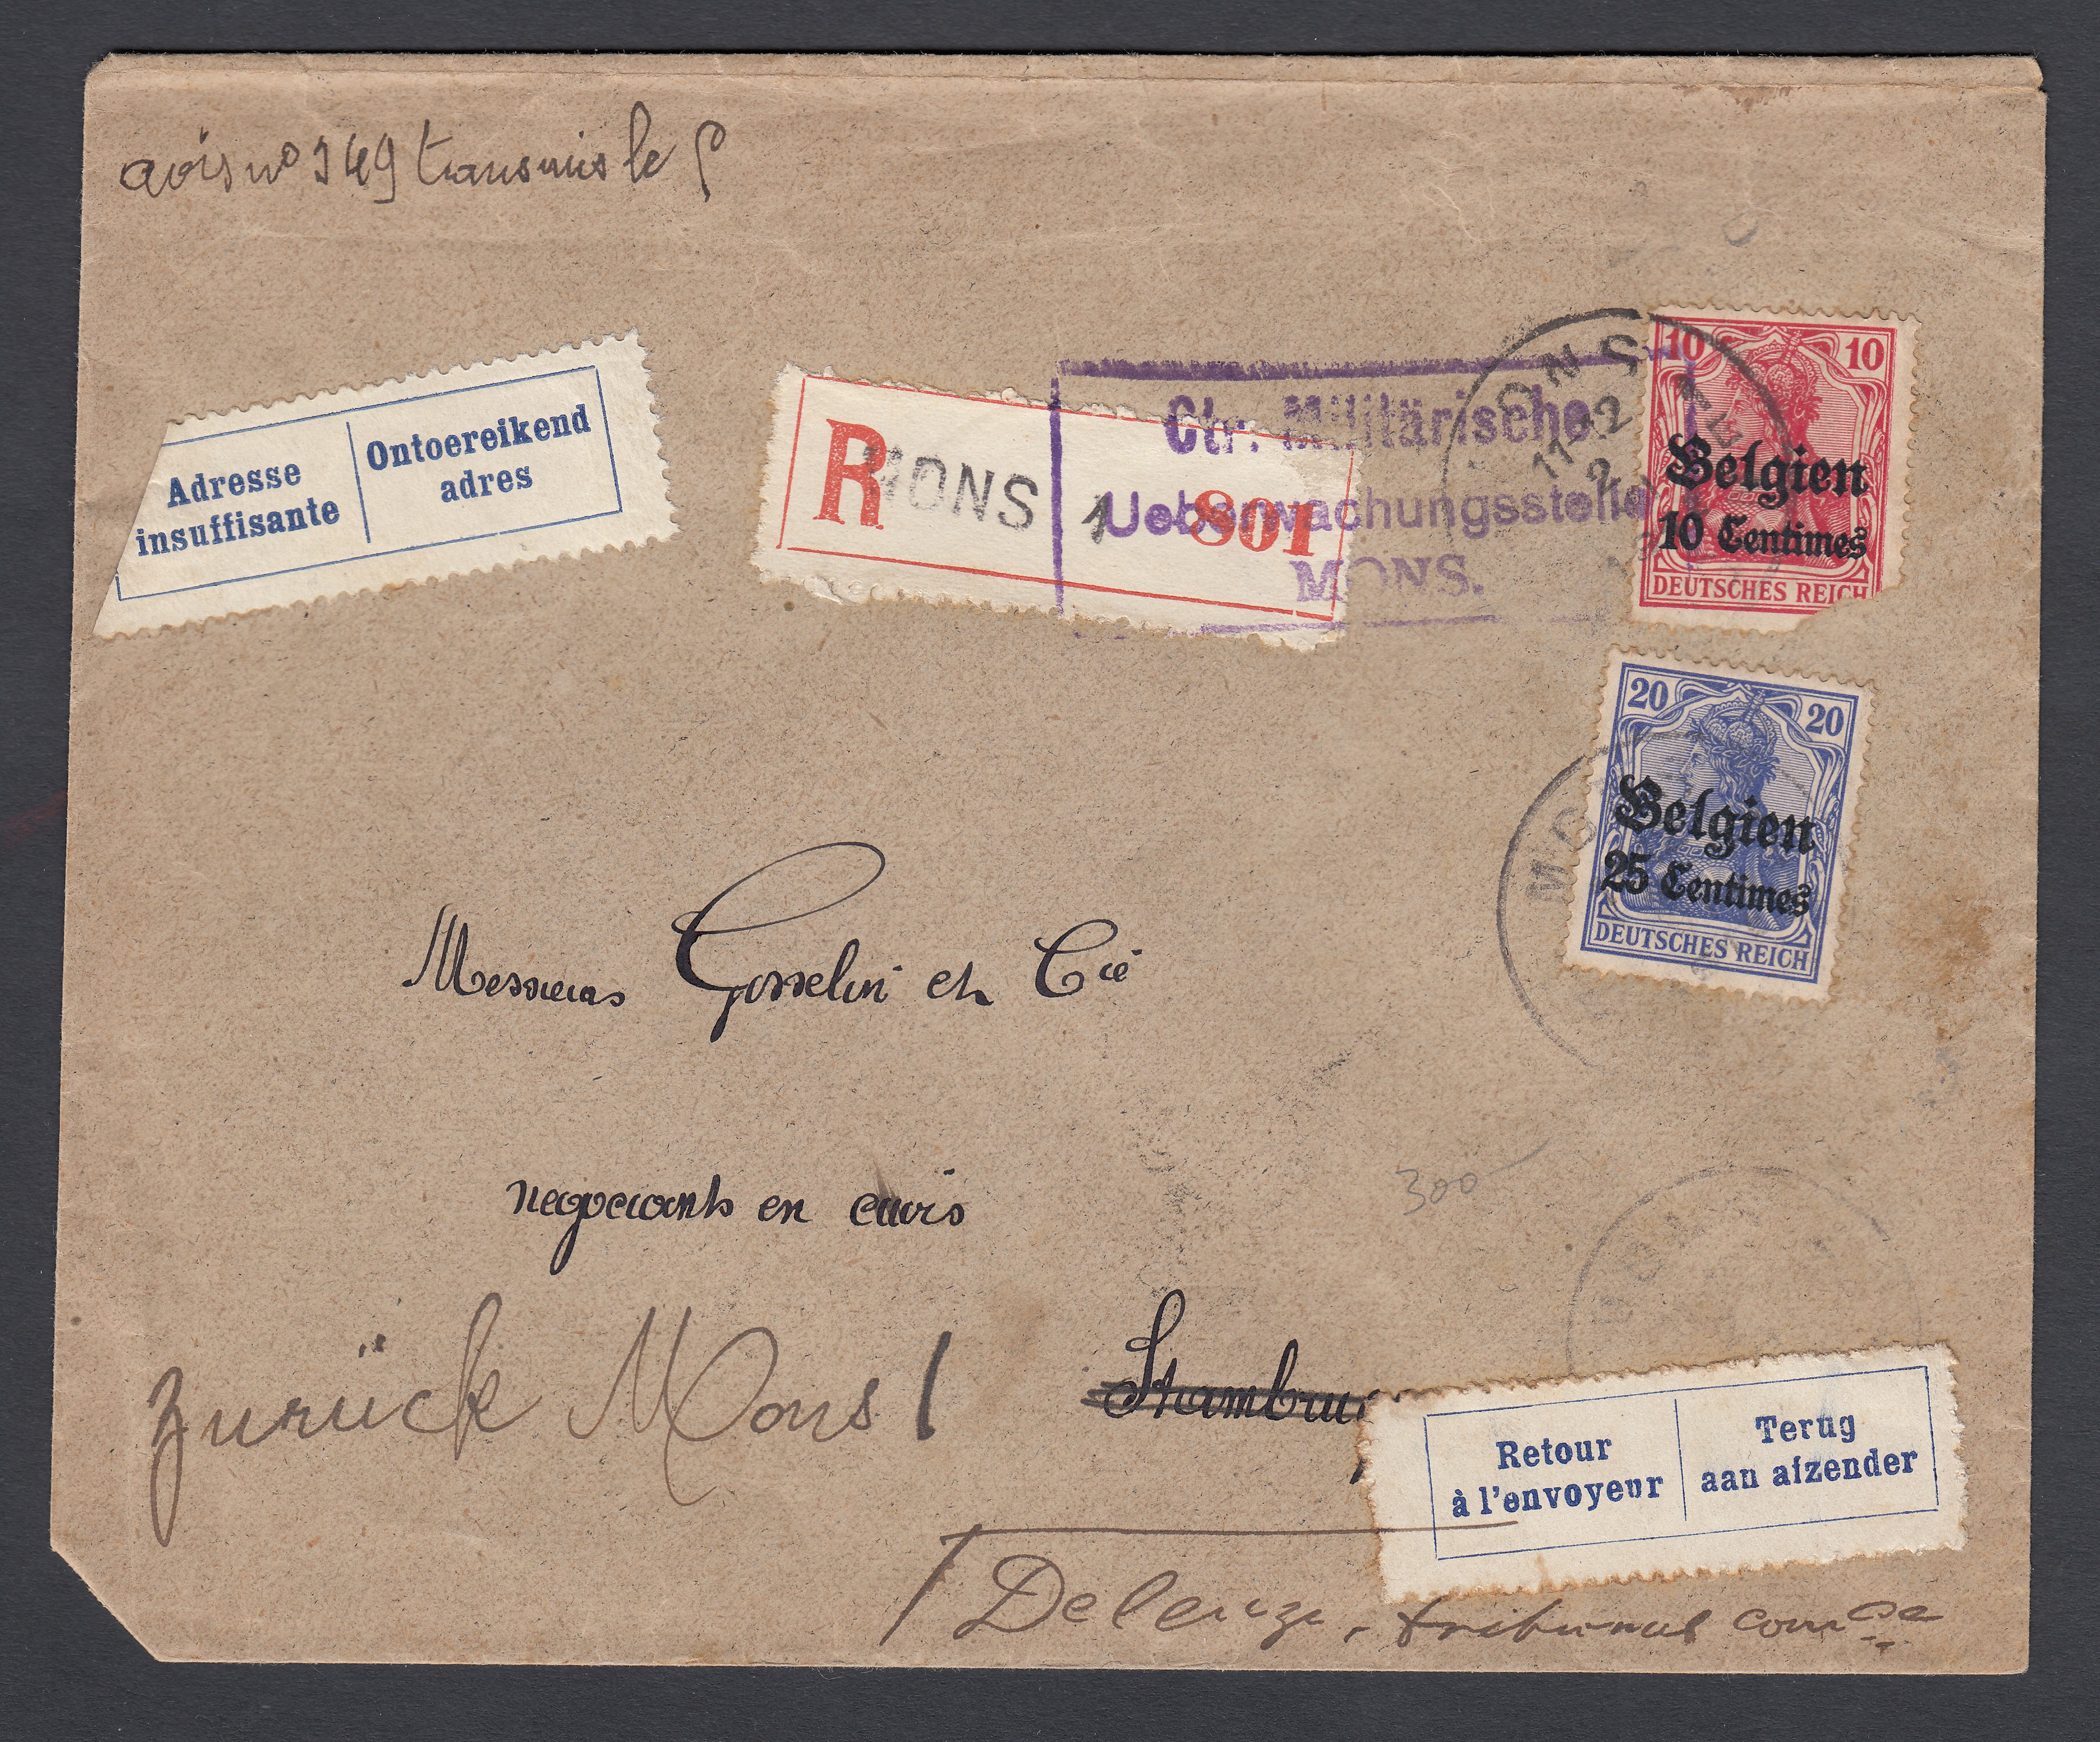 avis no 349 transmis le
Adresse insuffisante
Ontoereikend adres
R MONS 1 801
Ctr. Militärische
Ueberwachungsstelle
MONS.
MONS
11-12
10 10
Belgien
10 Centimes
DEUTSCHES REICH
20 20
Belgien
25 Centimes
DEUTSCHES REICH
Messieurs Gosselin et Cie
negociants en cuirs
300
zurück Mons 1
Stambru
Retour à l'envoyeur
Terug aan afzender
tribunal comce